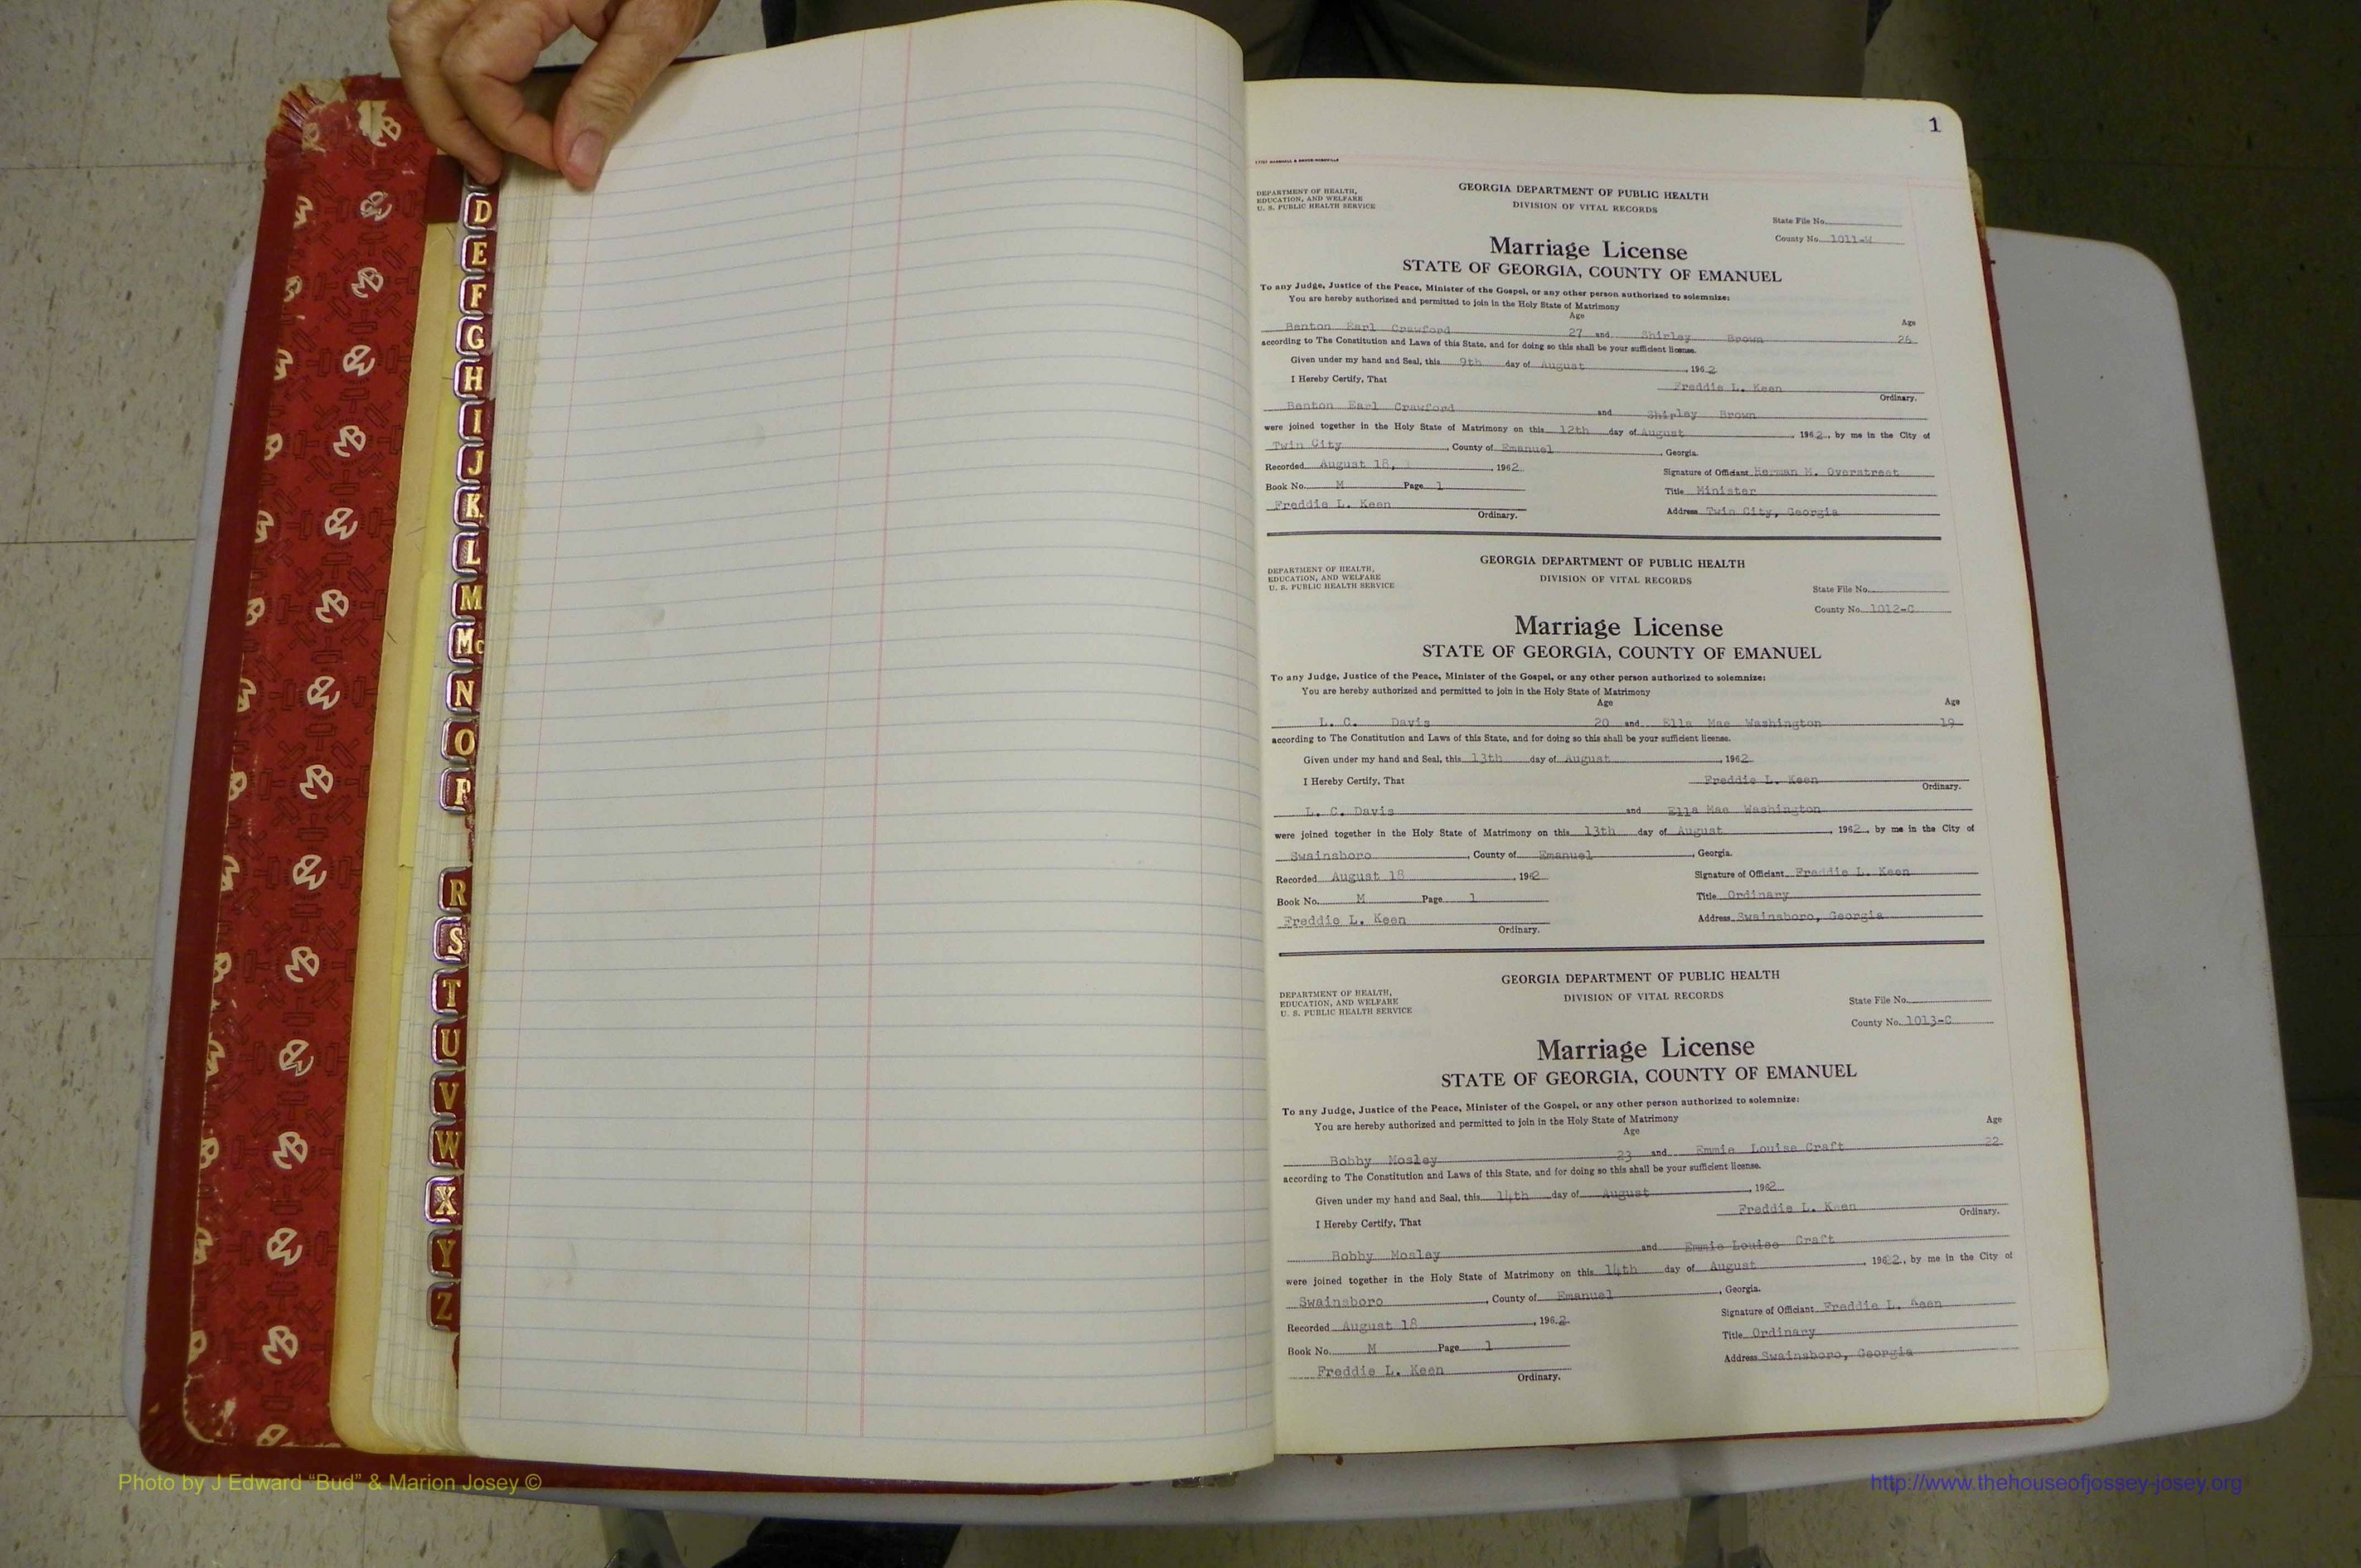 D
E
F
G
H
I
J
K
L
M
Mc
N
O
P
R
S
T
U
V
W
X
Y
Z
1
DEPARTMENT OF HEALTH,
EDUCATION, AND WELFARE
U. S. PUBLIC HEALTH SERVICE
GEORGIA DEPARTMENT OF PUBLIC HEALTH
DIVISION OF VITAL RECORDS
State File No.
County No. 1011-W
Marriage License
STATE OF GEORGIA, COUNTY OF EMANUEL
To any Judge, Justice of the Peace, Minister of the Gospel, or any other person authorized to solemnize:
You are hereby authorized and permitted to join in the Holy State of Matrimony
Age Age
Benton Earl Crawford 27 and Shirley Brown 26
according to The Constitution and Laws of this State, and for doing so this shall be your sufficient license.
Given under my hand and Seal, this 9th day of August, 1962
I Hereby Certify, That Freddie L. Keen
Ordinary.
Benton Earl Crawford and Shirley Brown
were joined together in the Holy State of Matrimony on this 12th day of August, 1962, by me in the City of
Twin City, County of Emanuel, Georgia.
Recorded August 18, , 1962 Signature of Officiant Herman M. Overstreet
Book No. M Page 1 Title Minister
Freddie L. Keen Address Twin City, Georgia
Ordinary.
DEPARTMENT OF HEALTH,
EDUCATION, AND WELFARE
U. S. PUBLIC HEALTH SERVICE
GEORGIA DEPARTMENT OF PUBLIC HEALTH
DIVISION OF VITAL RECORDS
State File No.
County No. 1012-C
Marriage License
STATE OF GEORGIA, COUNTY OF EMANUEL
To any Judge, Justice of the Peace, Minister of the Gospel, or any other person authorized to solemnize:
You are hereby authorized and permitted to join in the Holy State of Matrimony
Age Age
L. C. Davis 20 and Ella Mae Washington 19
according to The Constitution and Laws of this State, and for doing so this shall be your sufficient license.
Given under my hand and Seal, this 13th day of August, 1962
I Hereby Certify, That Freddie L. Keen
Ordinary.
L. C. Davis and Ella Mae Washington
were joined together in the Holy State of Matrimony on this 13th day of August, 1962, by me in the City of
Swainsboro, County of Emanuel, Georgia.
Recorded August 18, 1962 Signature of Officiant Freddie L. Keen
Book No. M Page 1 Title Ordinary
Freddie L. Keen Address Swainsboro, Georgia
Ordinary.
DEPARTMENT OF HEALTH,
EDUCATION, AND WELFARE
U. S. PUBLIC HEALTH SERVICE
GEORGIA DEPARTMENT OF PUBLIC HEALTH
DIVISION OF VITAL RECORDS
State File No.
County No. 1013-C
Marriage License
STATE OF GEORGIA, COUNTY OF EMANUEL
To any Judge, Justice of the Peace, Minister of the Gospel, or any other person authorized to solemnize:
You are hereby authorized and permitted to join in the Holy State of Matrimony
Age Age
Bobby Mosley 23 and Emmie Louise Craft 22
according to The Constitution and Laws of this State, and for doing so this shall be your sufficient license.
Given under my hand and Seal, this 14th day of August, 1962
I Hereby Certify, That Freddie L. Keen
Ordinary.
Bobby Mosley and Emmie Louise Craft
were joined together in the Holy State of Matrimony on this 14th day of August, 1962, by me in the City of
Swainsboro, County of Emanuel, Georgia.
Recorded August 18, 1962 Signature of Officiant Freddie L. Keen
Book No. M Page 1 Title Ordinary
Freddie L. Keen Address Swainsboro, Georgia
Ordinary.
Photo by J Edward “Bud” & Marion Josey ©
http://www.thehouseofjossey-josey.org